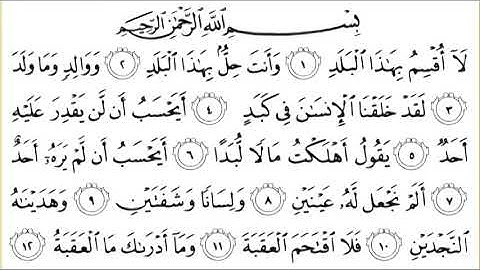 بِسْمِ ٱللَّهِ ٱلرَّحْمَٰنِ ٱلرَّحِيمِ
لَآ أُقْسِمُ بِهَٰذَا ٱلْبَلَدِ ١ وَأَنتَ حِلٌّۢ بِهَٰذَا ٱلْبَلَدِ ٢ وَوَالِدٍ وَمَا وَلَدَ
٣ لَقَدْ خَلَقْنَا ٱلْإِنسَٰنَ فِى كَبَدٍ ٤ أَيَحْسَبُ أَن لَّن يَقْدِرَ عَلَيْهِ
أَحَدٌ ٥ يَقُولُ أَهْلَكْتُ مَالًا لُّبَدًا ٦ أَيَحْسَبُ أَن لَّمْ يَرَهُۥٓ أَحَدٌ
٧ أَلَمْ نَجْعَل لَّهُۥ عَيْنَيْنِ ٨ وَلِسَانًا وَشَفَتَيْنِ ٩ وَهَدَيْنَٰهُ
ٱلنَّجْدَيْنِ ١٠ فَلَا ٱقْتَحَمَ ٱلْعَقَبَةَ ١١ وَمَآ أَدْرَىٰكَ مَا ٱلْعَقَبَةُ ١٢